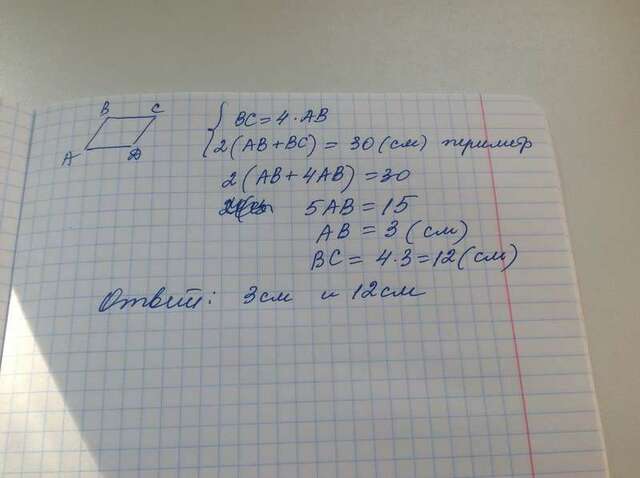 B C
A D
BC = 4 · AB
2(AB + BC) = 30 (см) периметр
2(AB + 4AB) = 30
5AB = 15
AB = 3 (см)
BC = 4·3 = 12 (см)
Ответ: 3 см и 12 см